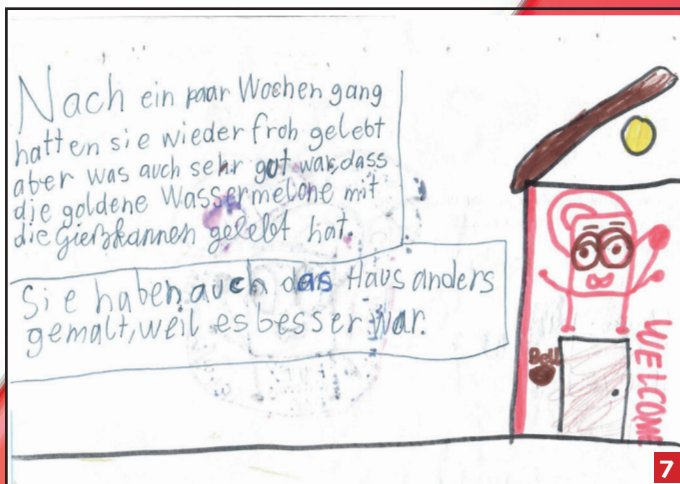 Nach ein paar Wochen gang
hatten sie wieder froh gelebt
aber was auch sehr gut war, dass
die goldene Wassermelone mit
die Gießkannen gelebt hat.
Sie haben auch das Haus anders
gemalt, weil es besser war.
Bell
WELCOME
7